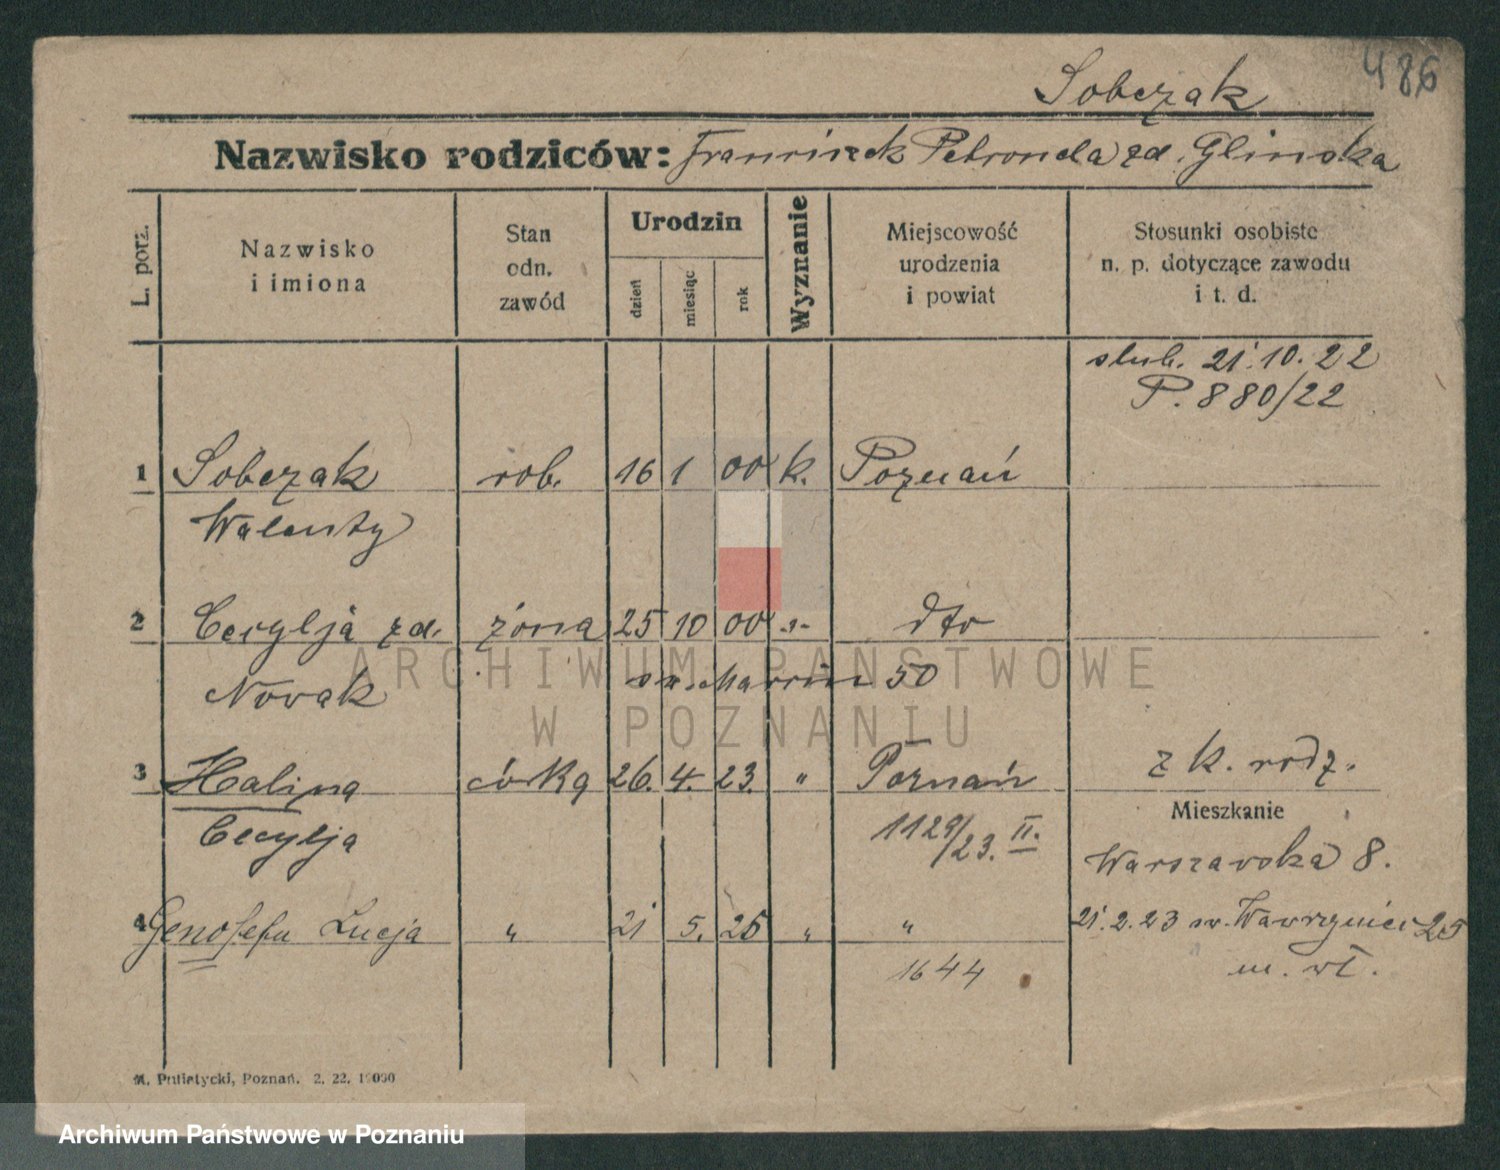 486
Sobczak
Nazwisko rodziców: Franciszek Petronela zd. Glinska
L. porz.
Nazwisko
i imiona
Stan
odn.
zawód
Urodzin
dzień
miesiąc
rok
Wyznanie
Miejscowość
urodzenia
i powiat
Stosunki osobiste
n. p. dotyczące zawodu
i t. d.
slub. 21.10.22
P. 880/22
1 Sobczak rob. 16 1 00 k. Poznań
Walenty
2 Cecylja zd. żona 25 10 00 dto
Nowak św. Marcin 50
3 Halina córka 26. 4. 23. " Poznań z k. rodz.
Cecylja 1129/23. II.
Mieszkanie
Warszavska 8.
4 Genofefa Lucja " 21 5. 25 " " 21.2.23 sw. Wawrzyniec 25
1644 m. wł.
M. Putiatycki, Poznań. 2. 22. 10000
ARCHIWUM PAŃSTWOWE
W POZNANIU
Archiwum Państwowe w Poznaniu